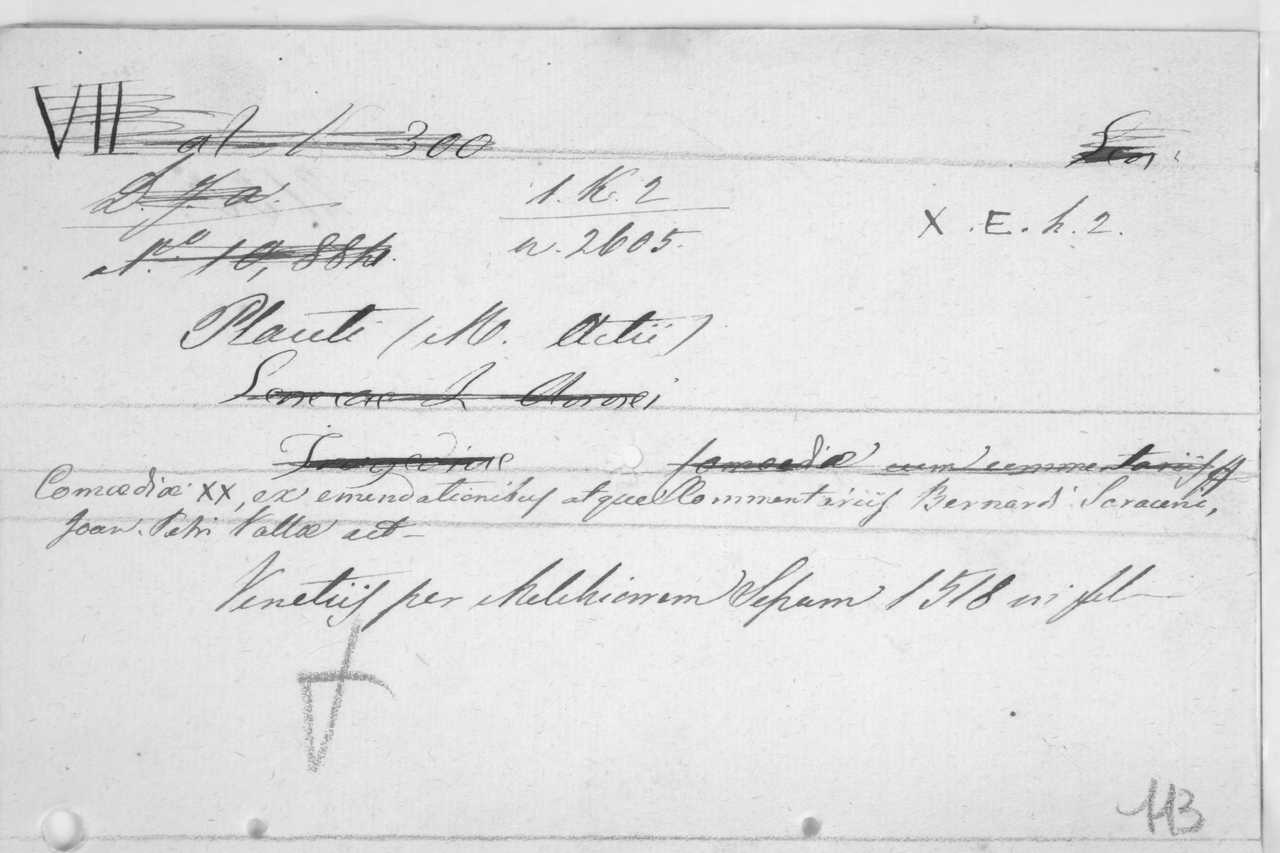 VII al. 300 Sen.
D. g. a. 1. K. 2 X. E. h. 2.
N.º 10,884. n. 2605.
Plauti (M. Actii)
Senecae L. Annaei
Tragediae Comoediæ cum commentariis
Comœdiæ XX, ex emendationibus atque Commentariis Bernardi Saraceni,
Joan. Petri Vallæ act-
Venetiis per Melchiorem Sessam 1518 in fol
113